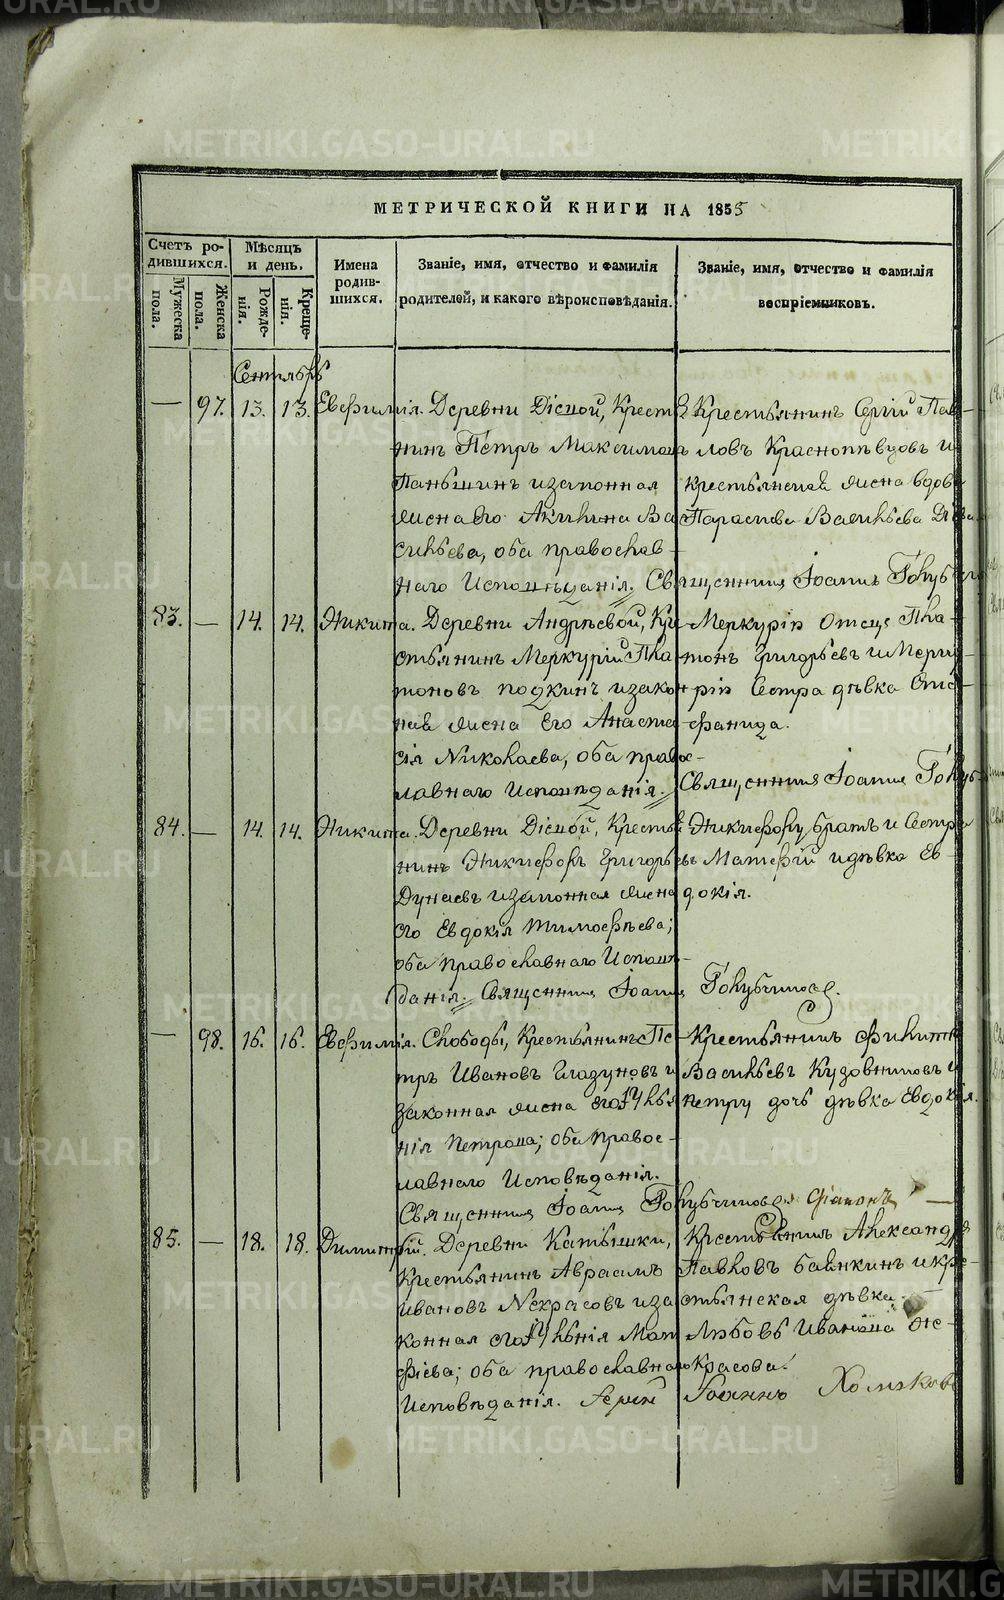 МЕТРИЧЕСКОЙ КНИГИ НА 1855
Счетъ ро-
дившихся.
Мѣсяцъ
и день.
Имена
родив-
шихся.
Званіе, имя, отчество и фамилія
родителей, и какого вѣроисповѣданія.
Званіе, имя, отчество и фамилія
воспріемниковъ.
Мужеска
пола.
Женска
пола.
Рожде-
нія.
Креще-
нія.
Сентябрь
— 97. 13. 13. Евфимія. Деревни Крестья
нинъ Петръ Максимовъ
Паньшинъ и законная
жена его Акилина Ва
сильева, оба православ-
наго Исповѣданія.
Крестьянинъ Сергій Пав-
ловъ Краснопѣвцовъ и
крестьянская жена вдова
Параскева Васильева
Священникъ Іоаннъ
83. — 14. 14. Никита. Деревни Андрѣевой, Кре-
стьянинъ Меркурій Пла
тоновъ и закон
ная жена его Анаста
сія Николаева, оба правос-
лавнаго Исповѣданія.
Меркурія Отецъ Пла-
тонъ Григорьевъ и Мерку-
рія Сестра дѣвка Сте-
фанида.
Священникъ Іоаннъ
84. — 14. 14. Никита. Деревни Крестья
нинъ Никифоръ Григорьевъ
Дунаевъ и законная жена
его Евдокія Тимофѣева;
оба православнаго Исповѣ-
данія. Священникъ Іоаннъ
Никифору братъ и Сестра
Матфій и дѣвка Ев-
докія.
— 98. 16. 16. Евфимія. Слободы, Крестьянинъ Пе-
тръ Ивановъ Глазуновъ и
законная жена его Улья
нія Петрова; оба Правос-
лавнаго Исповѣданія.
Священникъ Іоаннъ
Крестьянинъ Филиппъ
Васильевъ Кузовниковъ и
Петру дочь дѣвка Евдокія.
85. — 18. 18. Димитрій. Деревни Катышки,
Крестьянинъ Аврамъ
Ивановъ Некрасовъ и за
конная его Ульнія Мат
фіева; оба православнаго
Исповѣданія.
Крестьянинъ Александръ
Павловъ и кре-
стьянская дѣвка
Любовь Иванова Не-
красова.
METRIKI.GASO-URAL.RU